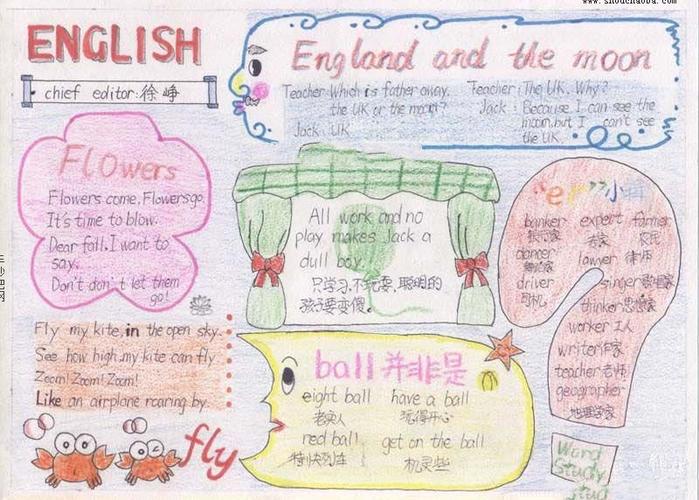 www.shouchaoba.com
ENGLISH
chief editor:徐峥
England and the moon
Teacher:Which is father away,
the UK or the moon?
Jack: UK
Teacher:The UK. Why?
Jack: Because I can see the
moon,but I can't see
the UK.
Flowers
Flowers come.Flowers go.
It's time to blow.
Dear fall.I want to
say.
Don't don't let them
go!
All work and no
play makes Jack a
dull boy.
只学习,不玩耍,聪明的
孩子要变傻。
"er"小
banker expert farmer
银行家 专家 农民
dancer lawyer 律师
舞蹈家
driver singer歌唱家
司机
thinker思想家
worker 工人
writer作家
teacher老师
geographer
地理学家
Word
Study
Fly my kite,in the open sky.
See how high,my kite can fly
Zoom! Zoom! Zoom!
Like an airplane roaring by.
fly
ball 并非是
eight ball have a ball
老实人 玩得开心
red ball. get on the ball
特快列车 机灵些